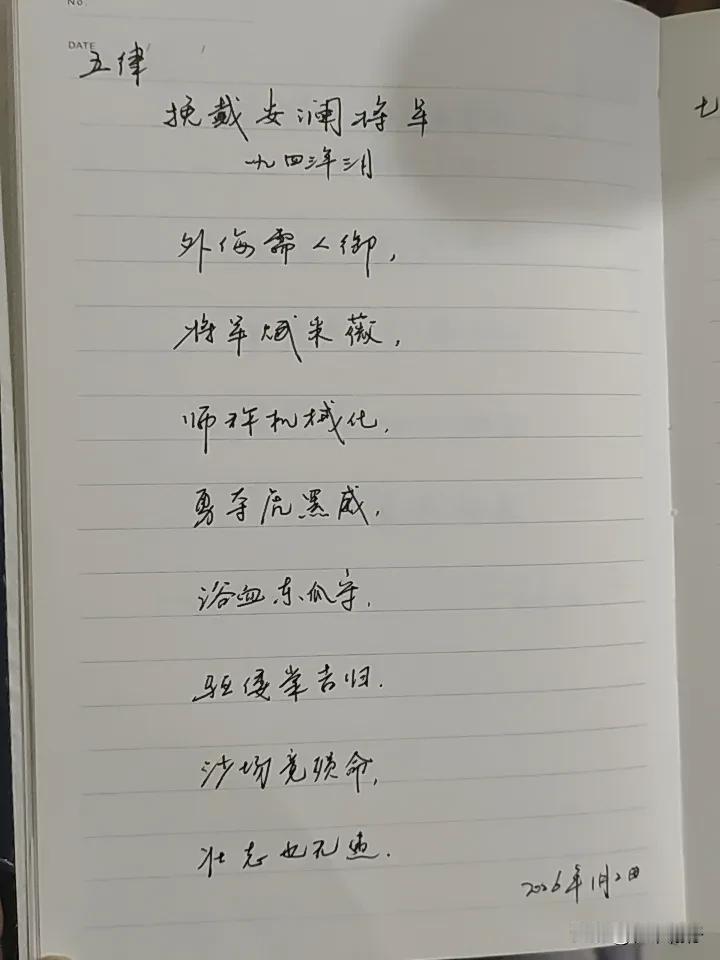 No.
DATE / /
五律
挽戴安澜将军
一九四三年三月
外侮需人御,
将军赋采薇,
师称机械化,
勇夺虎罴威,
浴血东瓜守,
驱倭棠吉归.
沙场竟殒命,
壮志也无违.
2026年1月2日
七